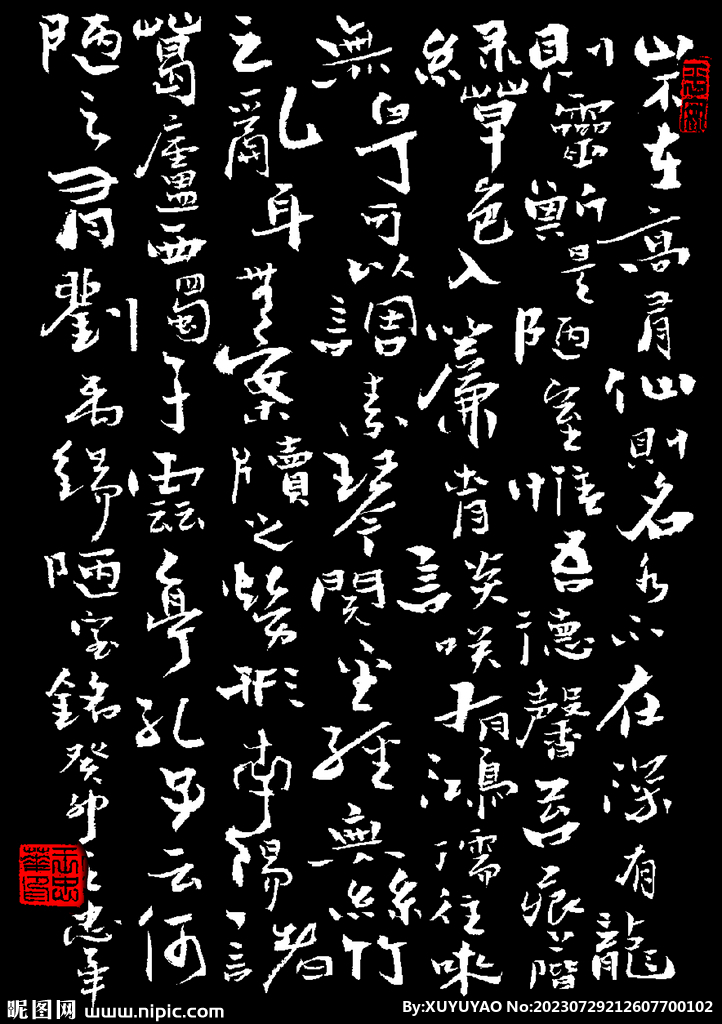 山不在高有仙則名水不在深有龍
則靈斯是陋室惟吾德馨苔痕上階
綠草色入簾青談咲有鴻儒往來
無白丁可以調素琴閱金經無絲竹
之亂耳無案牘之勞形南陽諸
葛廬西蜀子雲亭孔子云何
陋之有劉禹錫陋室銘癸卯王忠華
昵图网 www.nipic.com
By:XUYUYAO No:20230729212607700102